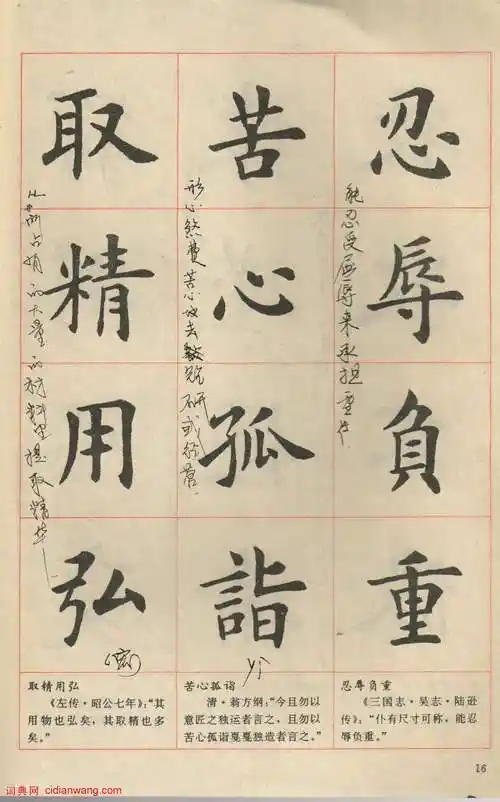 忍辱負重
能忍受屈辱来承担重任
苦心孤詣
费苦心 研或经营
yì
取精用弘
占有的大量的材料里提取精华
(宏)
取精用弘
《左传·昭公七年》:“其
用物也弘矣,其取精也多
矣。”
苦心孤诣
清·翁方纲:“今且勿以
意匠之独运者言之,且勿以
苦心孤诣戛戛独造者言之。”
忍辱负重
《三国志·吴志·陆逊
传》:“仆有尺寸可称,能忍
辱负重。”
16
词典网 cidianwang.com